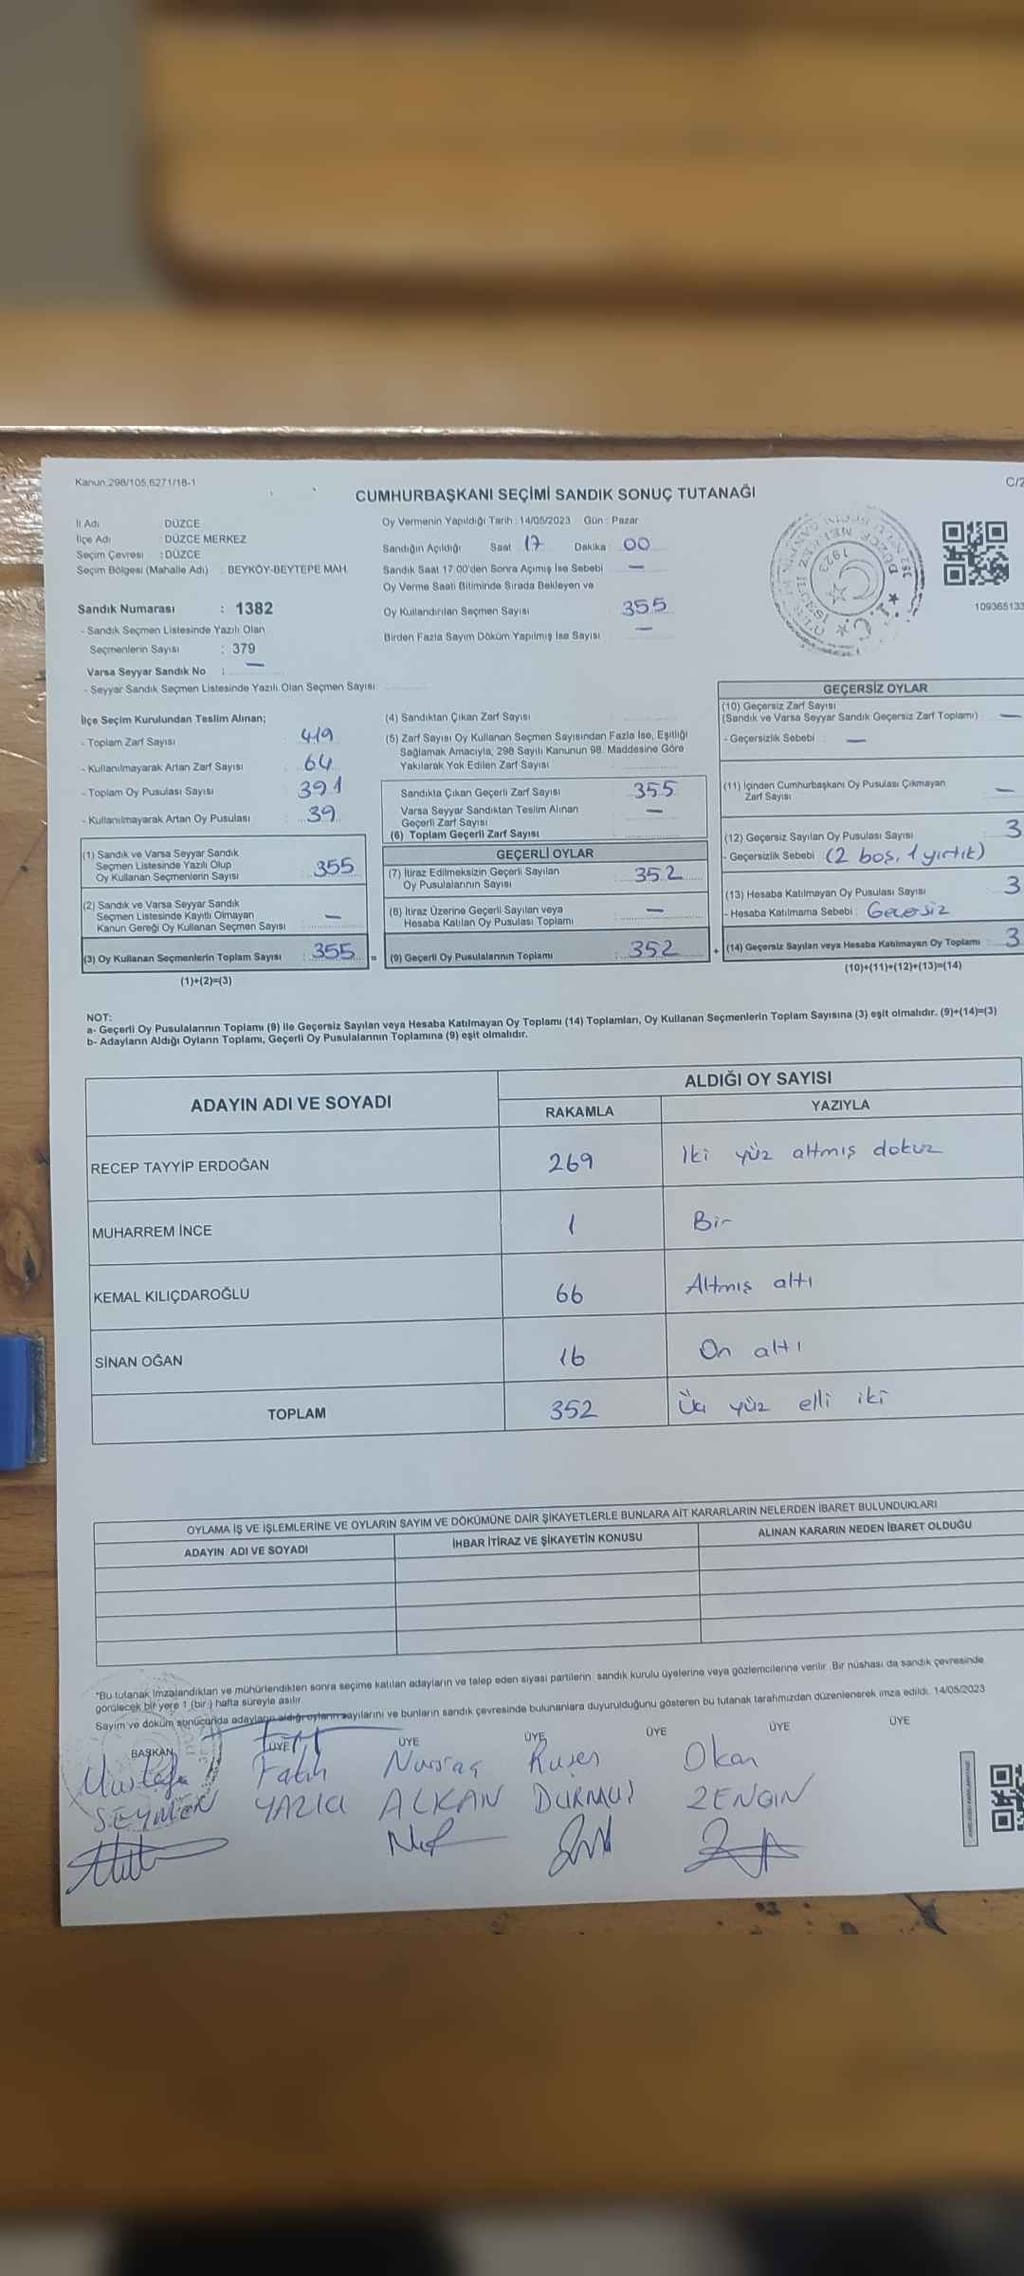 Kanun:298/105,6271/18-1
C/2
CUMHURBAŞKANI SEÇİMİ SANDIK SONUÇ TUTANAĞI
İl Adı DÜZCE
İlçe Adı : DÜZCE MERKEZ
Seçim Çevresi : DÜZCE
Seçim Bölgesi (Mahalle Adı) : BEYKÖY-BEYTEPE MAH.
Sandık Numarası : 1382
- Sandık Seçmen Listesinde Yazılı Olan
Seçmenlerin Sayısı : 379
Varsa Seyyar Sandık No : —
- Seyyar Sandık Seçmen Listesinde Yazılı Olan Seçmen Sayısı:
Oy Vermenin Yapıldığı Tarih : 14/05/2023 Gün : Pazar
Sandığın Açıldığı Saat 17 Dakika 00
Sandık Saat 17:00'den Sonra Açımış İse Sebebi —
Oy Verme Saati Bitiminde Sırada Bekleyen ve
Oy Kullandırılan Seçmen Sayısı 355
Birden Fazla Sayım Döküm Yapılmış İse Sayısı —
109365133
İlçe Seçim Kurulundan Teslim Alınan;
- Toplam Zarf Sayısı 419
- Kullanılmayarak Artan Zarf Sayısı 64
- Toplam Oy Pusulası Sayısı 391
- Kullanılmayarak Artan Oy Pusulası 39
(1) Sandık ve Varsa Seyyar Sandık
Seçmen Listesinde Yazılı Olup
Oy Kullanan Seçmenlerin Sayısı 355
(2) Sandık ve Varsa Seyyar Sandık
Seçmen Listesinde Kayıtlı Olmayan
Kanun Gereği Oy Kullanan Seçmen Sayısı —
(3) Oy Kullanan Seçmenlerin Toplam Sayısı : 355 =
(1)+(2)=(3)
(4) Sandıktan Çıkan Zarf Sayısı
(5) Zarf Sayısı Oy Kullanan Seçmen Sayısından Fazla İse, Eşitliği
Sağlamak Amacıyla, 298 Sayılı Kanunun 98. Maddesine Göre
Yakılarak Yok Edilen Zarf Sayısı
Sandıkta Çıkan Geçerli Zarf Sayısı 355
Varsa Seyyar Sandıktan Teslim Alınan
Geçerli Zarf Sayısı —
(6) Toplam Geçerli Zarf Sayısı
GEÇERLİ OYLAR
(7) İtiraz Edilmeksizin Geçerli Sayılan
Oy Pusulalarının Sayısı 352
(8) İtiraz Üzerine Geçerli Sayılan veya
Hesaba Katılan Oy Pusulası Toplamı —
(9) Geçerli Oy Pusulalarının Toplamı : 352 +
GEÇERSİZ OYLAR
(10) Geçersiz Zarf Sayısı
(Sandık ve Varsa Seyyar Sandık Geçersiz Zarf Toplamı) —
- Geçersizlik Sebebi : —
(11) İçinden Cumhurbaşkanı Oy Pusulası Çıkmayan
Zarf Sayısı —
(12) Geçersiz Sayılan Oy Pusulası Sayısı 3
- Geçersizlik Sebebi (2 boş, 1 yırtık)
(13) Hesaba Katılmayan Oy Pusulası Sayısı 3
- Hesaba Katılmama Sebebi : Gecesiz
(14) Geçersiz Sayılan veya Hesaba Katılmayan Oy Toplamı : 3
(10)+(11)+(12)+(13)=(14)
NOT:
a- Geçerli Oy Pusulalarının Toplamı (9) ile Geçersiz Sayılan veya Hesaba Katılmayan Oy Toplamı (14) Toplamları, Oy Kullanan Seçmenlerin Toplam Sayısına (3) eşit olmalıdır. (9)+(14)=(3)
b- Adayların Aldığı Oyların Toplamı, Geçerli Oy Pusulalarının Toplamına (9) eşit olmalıdır.
ADAYIN ADI VE SOYADI ALDIĞI OY SAYISI
RAKAMLA YAZIYLA
RECEP TAYYİP ERDOĞAN 269 İki yüz altmış dokuz
MUHARREM İNCE 1 Bir
KEMAL KILIÇDAROĞLU 66 Altmış altı
SİNAN OĞAN 16 On altı
TOPLAM 352 Üç yüz elli iki
OYLAMA İŞ VE İŞLEMLERİNE VE OYLARIN SAYIM VE DÖKÜMÜNE DAİR ŞİKAYETLERLE BUNLARA AİT KARARLARIN NELERDEN İBARET BULUNDUKLARI
ADAYIN ADI VE SOYADI İHBAR İTİRAZ VE ŞİKAYETİN KONUSU ALINAN KARARIN NEDEN İBARET OLDUĞU
*Bu tutanak imzalandıktan ve mühürlendikten sonra seçime katılan adayların ve talep eden siyasi partilerin sandık kurulu üyelerine veya gözlemcilerine verilir. Bir nüshası da sandık çevresinde
görülecek bir yere 1 (bir) hafta süreyle asılır.
Sayım ve döküm sonucunda adayların aldığı oyların sayılarını ve bunların sandık çevresinde bulunanlara duyurulduğunu gösteren bu tutanak tarafımızdan düzenlenerek imza edildi. 14/05/2023
BAŞKAN ÜYE ÜYE ÜYE ÜYE ÜYE ÜYE
Mustafa Fatih Ruşen Okan
SEYMEN YAZICI ALKAN DURMUŞ ZENGİN